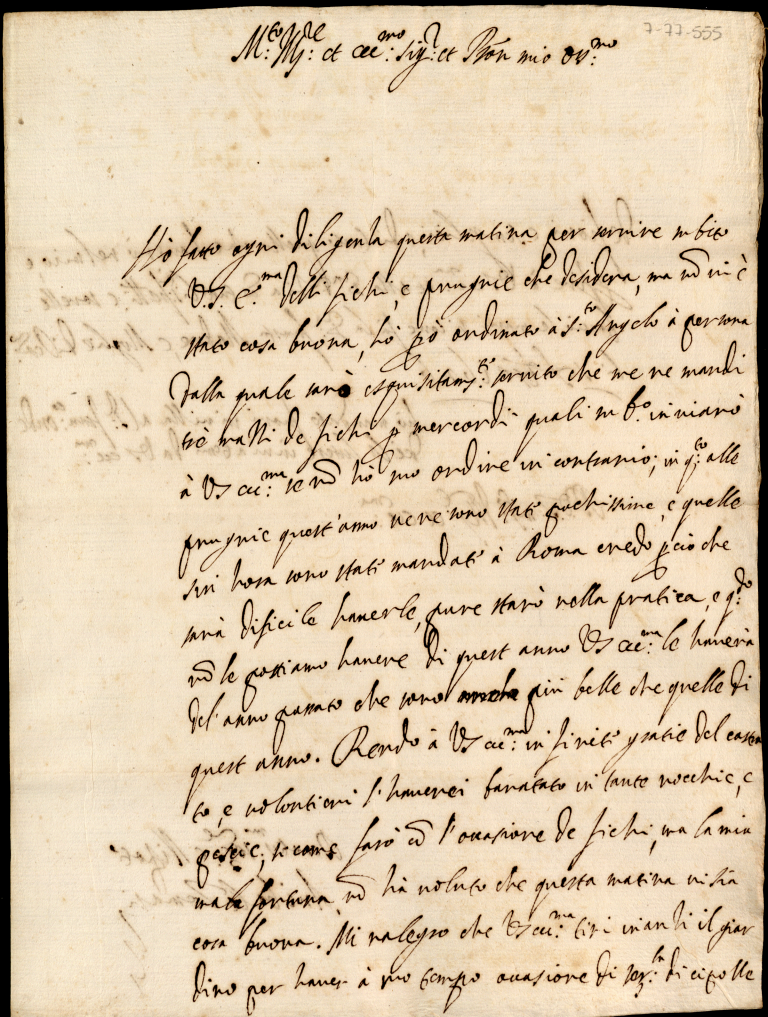 7-77-555
M:to Ill:re et ecc:mo Sig:r et Pron mio oss:mo
Hò fatto ogni diligenza questa matina per servire subito
V.S. Ecc:ma delli fichi, e prugnie che desidera, ma nõ vi è
stato cosa buona, hò p̃ò ordinato à S:to Angelo à persona
dalla quale sarò esquisitam:te servito che me ne mandi
trè
de fichi p mercordi quali sub:o inviarò
à VS ecc:ma se nõ hò suo ordine in contrario; in q:to alle
prugnie quest'anno ve ne sono state pochissime, e quelle
sin hora sono state mandate à Roma credo p ciò che
sarà dificile haverle, pure starò nella pratica, e q:do
nõ le possiamo havere di quest anno VS ecc:ma le haverà
del'anno passato che sono più belle che quelle di
quest anno. Rendo à VS ecc:ma infinite gratie del
to, e volontieri l'haverei baratato in tante
e
pescie, si come farò cõ l'ocasione de fichi, ma la mia
mala fortuna nõ hà voluto che questa matina vi sia
cosa buona. Mi ralegro che VS ecc:ma tiri inanzi il giar
dino per haver à suo tempo ocasione di ser:la di cipolle